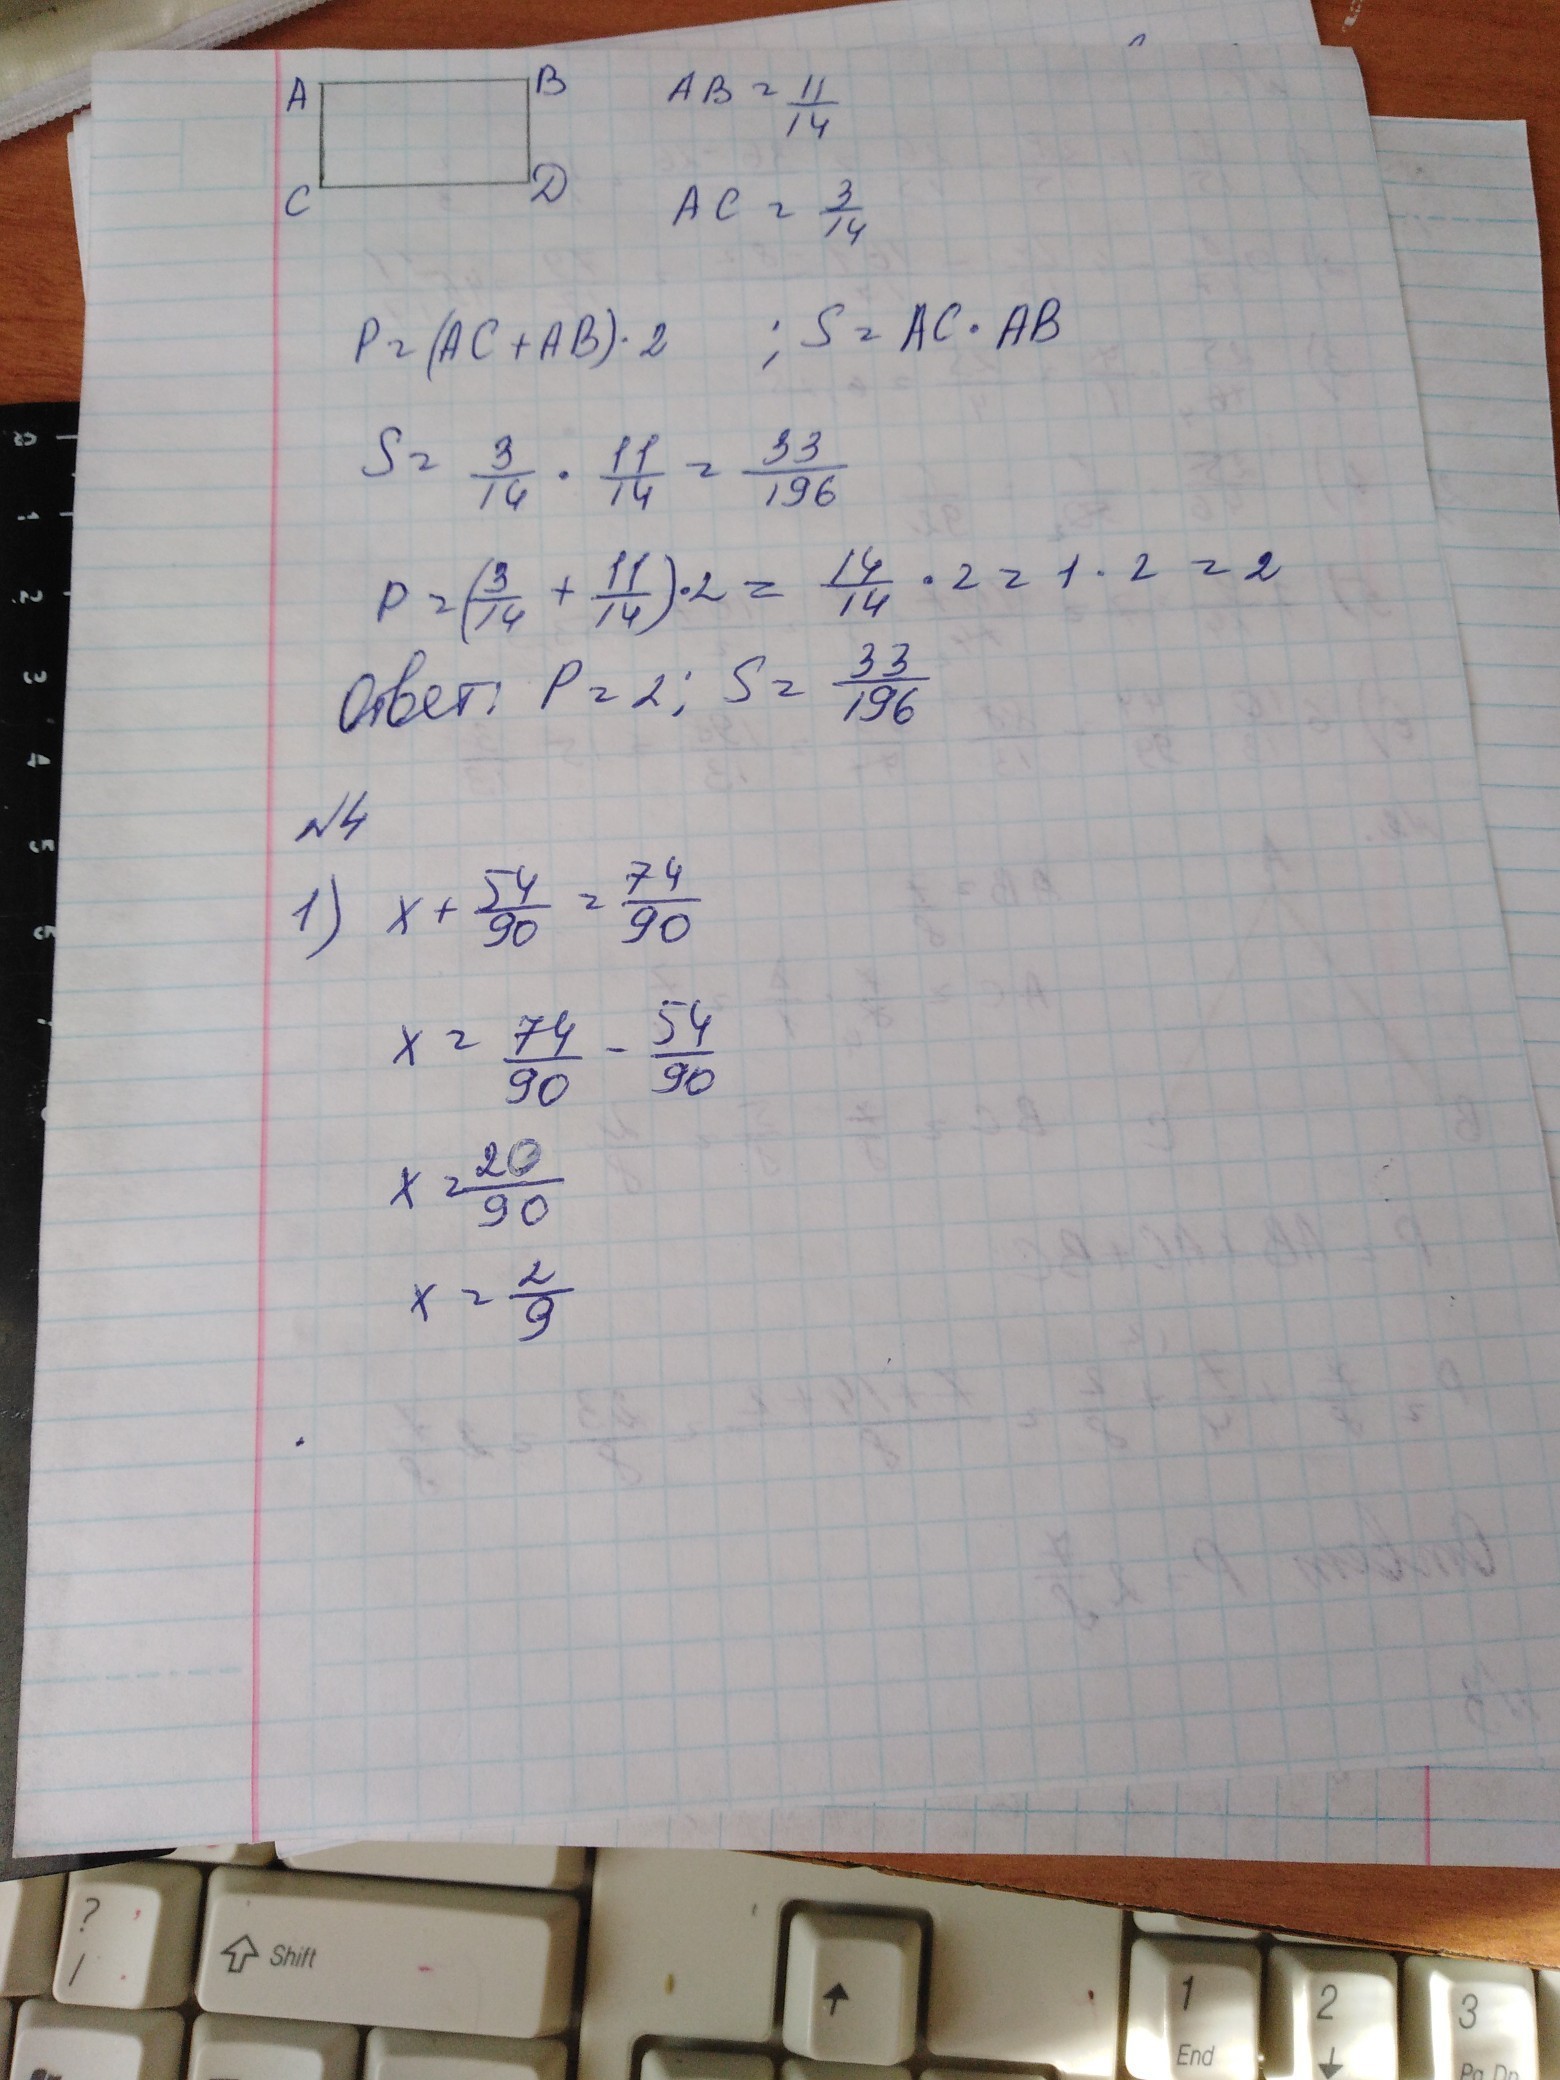 A B AB = 11/14
C D AC = 3/14
P = (AC + AB) · 2 ; S = AC · AB
S = 3/14 · 11/14 = 33/196
P = (3/14 + 11/14) · 2 = 14/14 · 2 = 1 · 2 = 2
Ответ: P = 2; S = 33/196
№4
1) x + 54/90 = 74/90
x = 74/90 - 54/90
x = 20/90
x = 2/9
0
1
2
3
4
5
6
7
? /
Shift
↑
1 End
2 ↓
3 Pg Dn